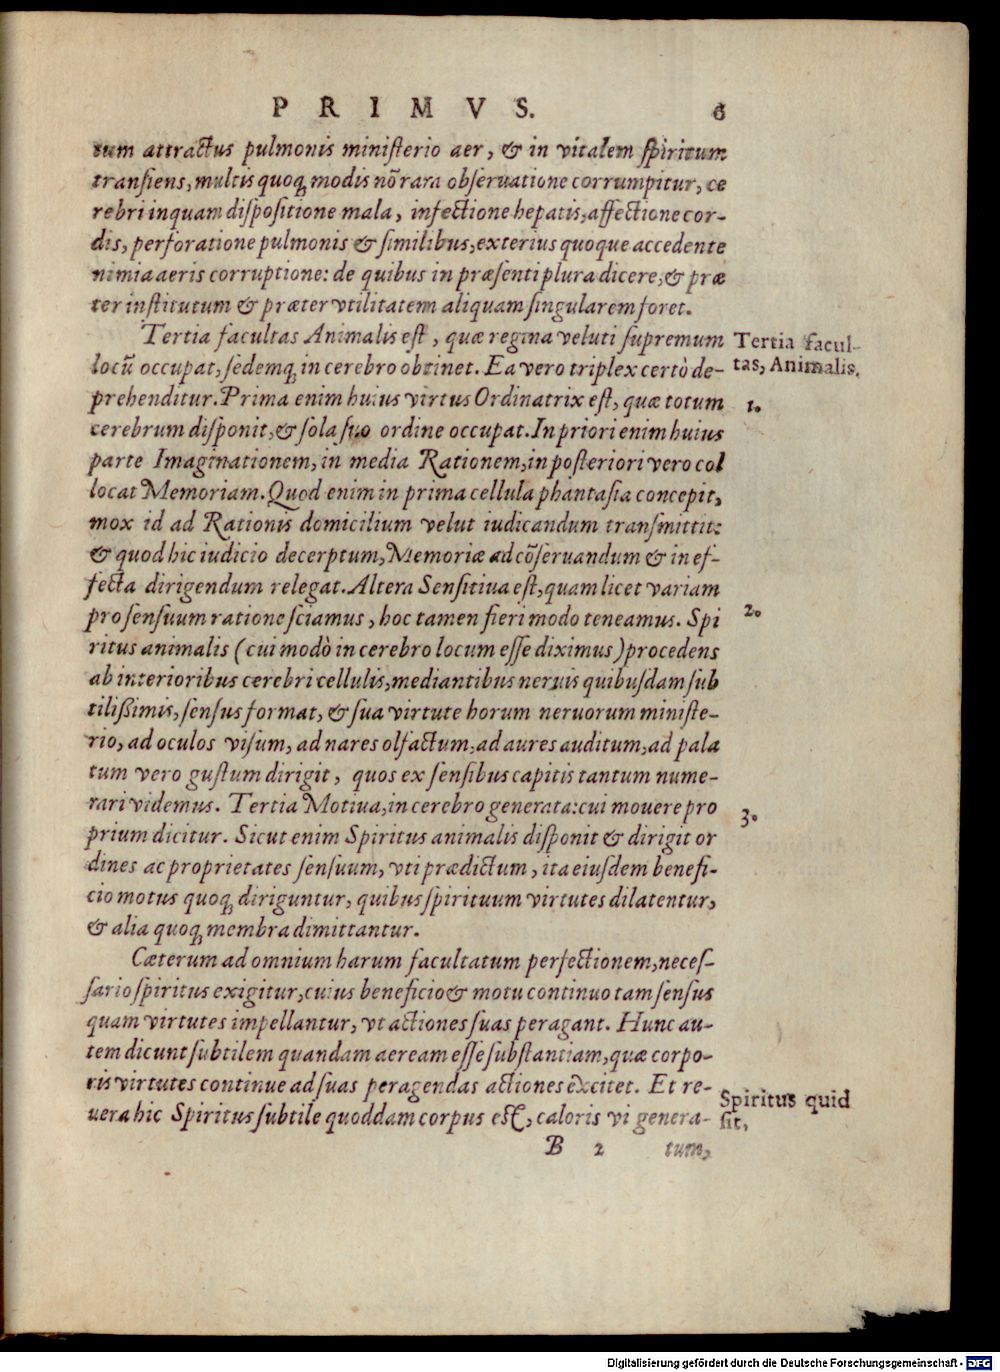 PRIMVS. 6
tum attractus pulmonis ministerio aer, & in vitalem spiritum
transiens, multis quoq; modis nõ rara obseruatione corrumpitur, ce
rebri inquam dispositione mala, infectione hepatis, affectione cor-
dis, perforatione pulmonis & similibus, exterius quoque accedente
nimia aeris corruptione: de quibus in præsenti plura dicere, & præ
ter institutum & præter vtilitatem aliquam singularem foret.
Tertia facultas Animalis est, quæ regina veluti supremum
Tertia facul-
locũ occupat, sedemq; in cerebro obtinet. Ea vero triplex certò de-
tas, Animalis.
prehenditur. Prima enim huius virtus Ordinatrix est, quæ totum
1.
cerebrum disponit, & sola suo ordine occupat. In priori enim huius
parte Imaginationem, in media Rationem, in posteriori vero col
locat Memoriam. Quod enim in prima cellula phantasia concepit,
mox id ad Rationis domicilium velut iudicandum transmittit:
& quod hic iudicio decerptum, Memoriæ ad cõseruandum & in ef-
fecta dirigendum relegat. Altera Sensitiua est, quam licet variam
2.
pro sensuum ratione sciamus, hoc tamen fieri modo teneamus. Spi
ritus animalis (cui modò in cerebro locum esse diximus) procedens
ab interioribus cerebri cellulis, mediantibus neruis quibusdam sub
tilißimis, sensus format, & sua virtute horum neruorum ministe-
rio, ad oculos visum, ad nares olfactum, ad aures auditum, ad pala
tum vero gustum dirigit, quos ex sensibus capitis tantum nume-
rari videmus. Tertia Motiua, in cerebro generata: cui mouere pro
3.
prium dicitur. Sicut enim Spiritus animalis disponit & dirigit or
dines ac proprietates sensuum, vti prædictum, ita eiusdem benefi-
cio motus quoq; diriguntur, quibus spirituum virtutes dilatentur,
& alia quoq; membra dimittantur.
Cæterum ad omnium harum facultatum perfectionem, neces-
sario spiritus exigitur, cuius beneficio & motu continuo tam sensus
quam virtutes impellantur, vt actiones suas peragant. Hunc au-
tem dicunt subtilem quandam aeream esse substantiam, quæ corpo-
ris virtutes continue ad suas peragendas actiones excitet. Et re-
Spiritus quid
uera hic Spiritus subtile quoddam corpus est, caloris vi genera-
sit,
B 2 tum,
Digitalisierung gefördert durch die Deutsche Forschungsgemeinschaft - DFG